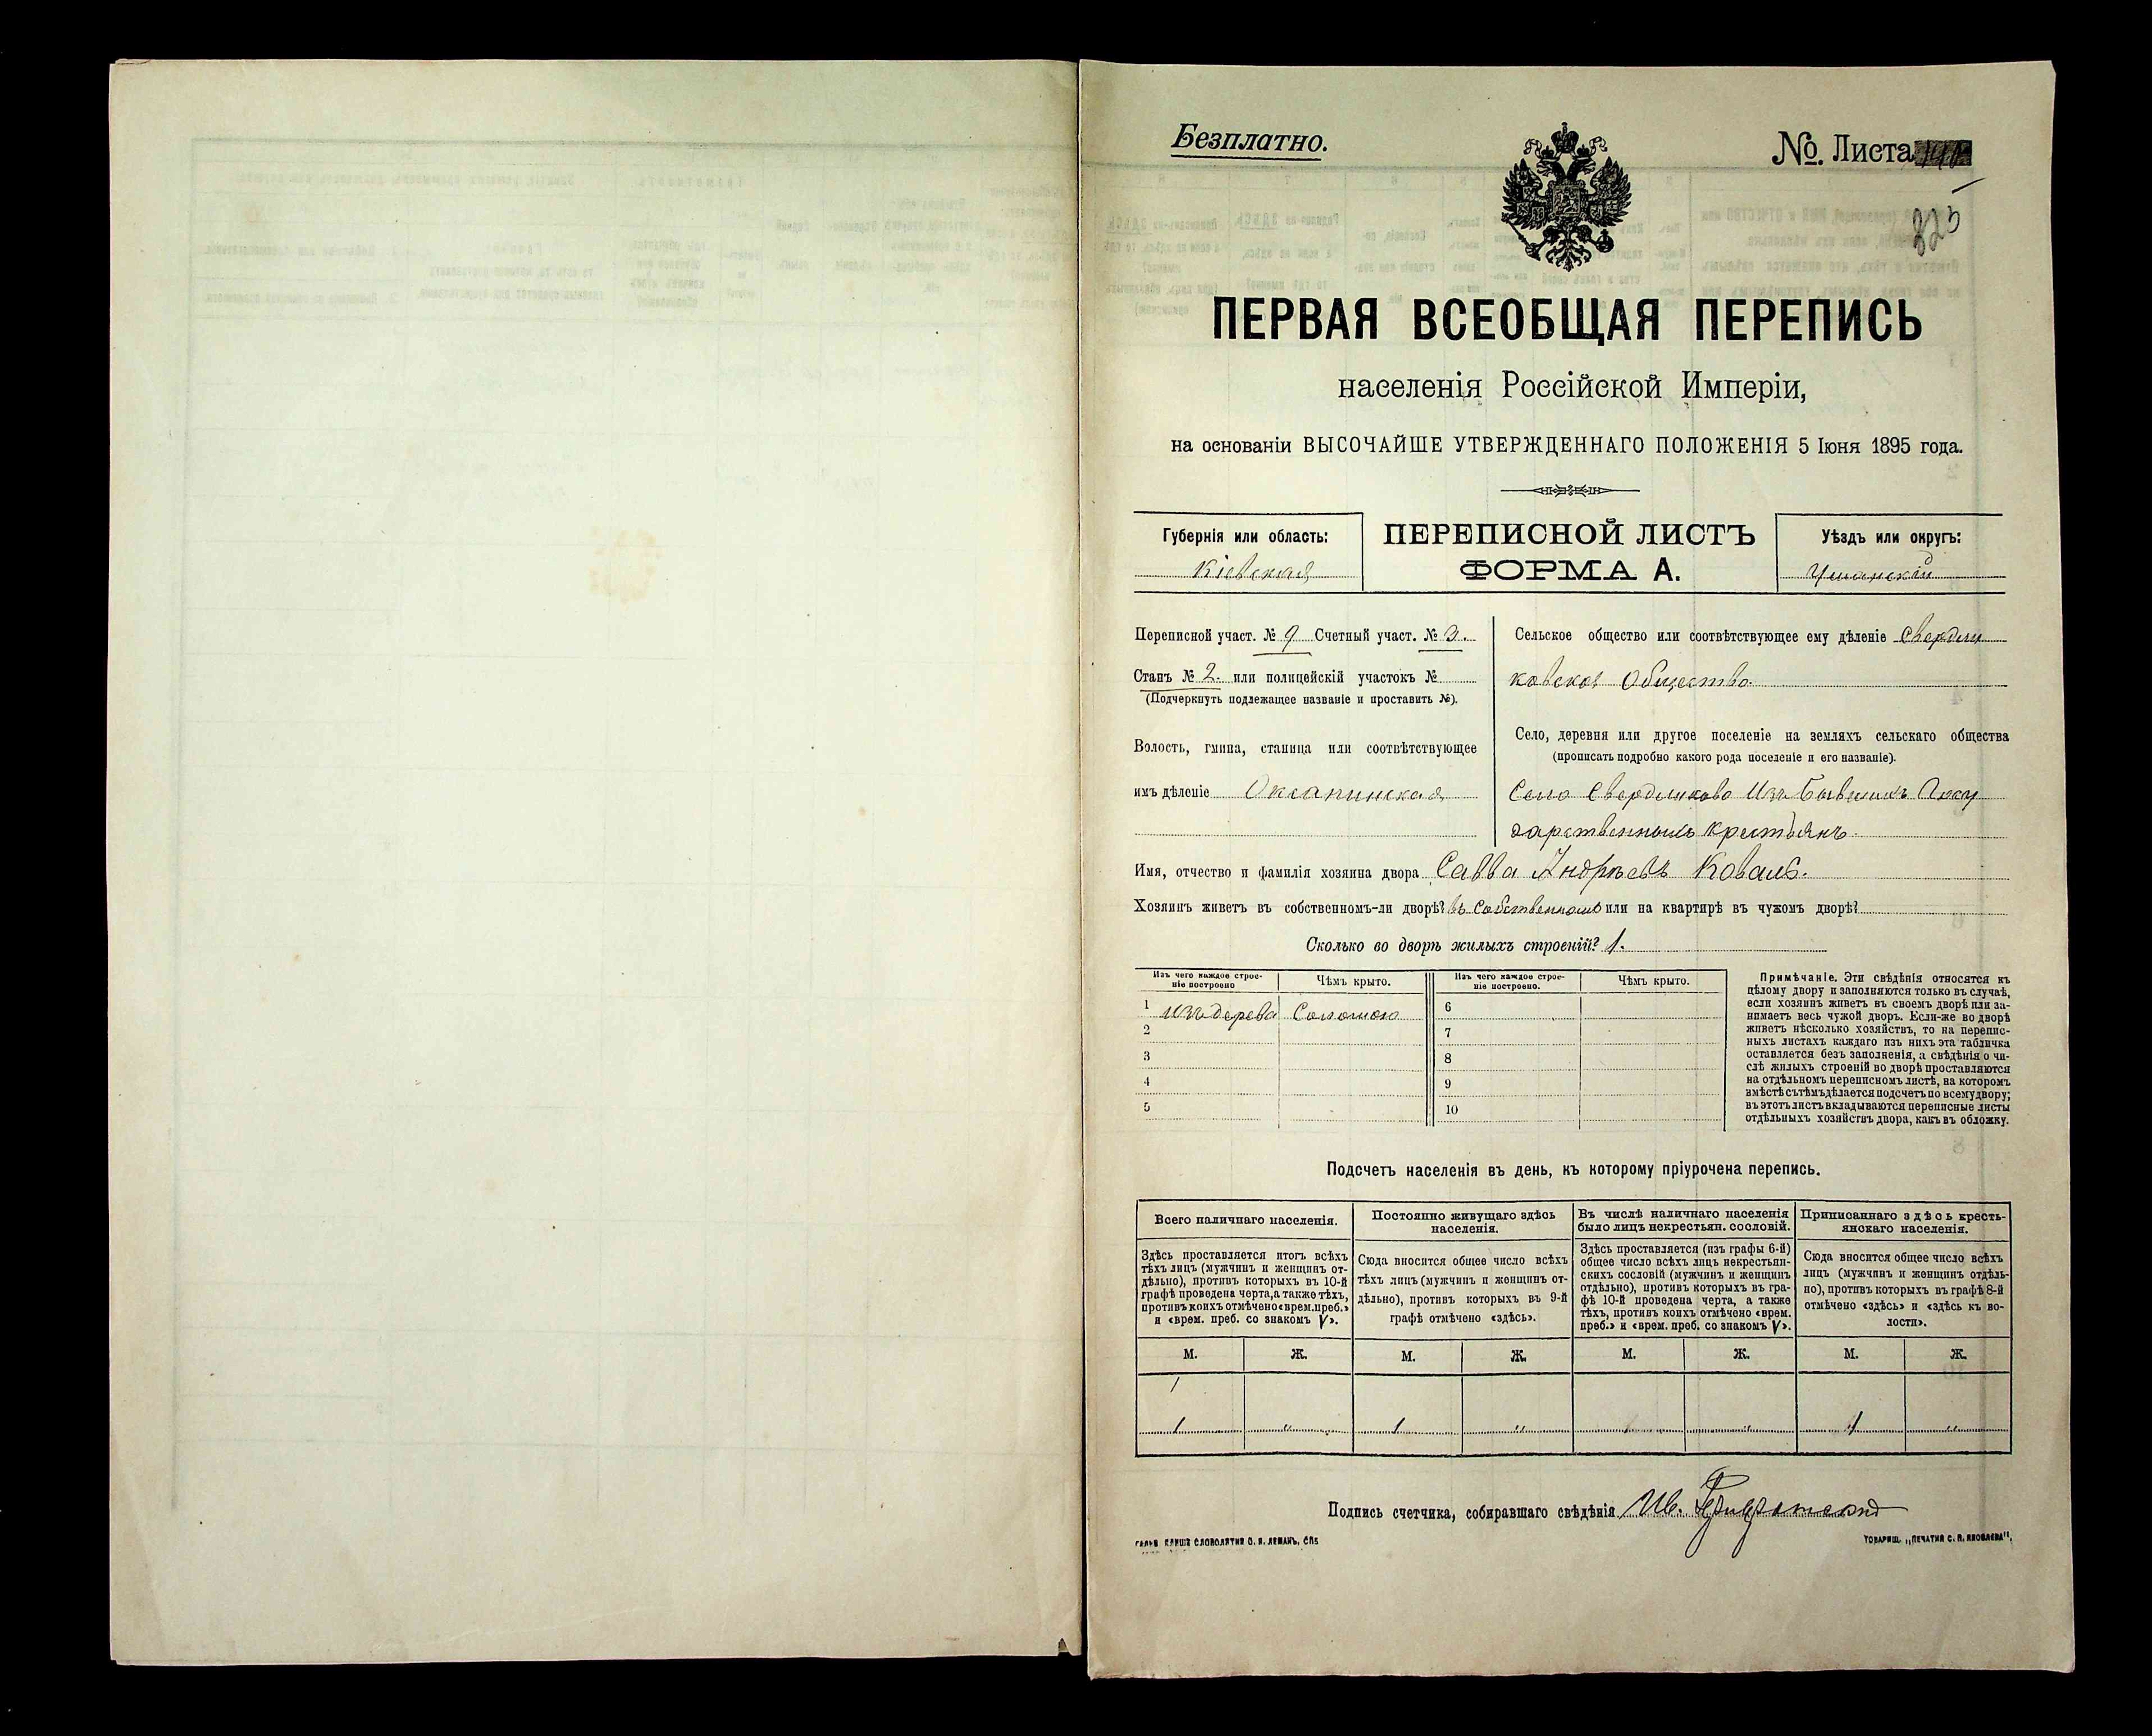 Безплатно.
№. Листа
225
ПЕРВАЯ ВСЕОБЩАЯ ПЕРЕПИСЬ
населенія Россійской Имперіи,
на основаніи ВЫСОЧАЙШЕ УТВЕРЖДЕННАГО ПОЛОЖЕНІЯ 5 Іюня 1895 года.
Губернія или область:
Кіевская
ПЕРЕПИСНОЙ ЛИСТЪ
ФОРМА А.
Уѣздъ или округъ:
Уманскій
Переписной участ. № 9 Счетный участ. № 3.
Станъ № 2. или полицейскій участокъ №
(Подчеркнуть подлежащее названіе и проставить №).
Волость, гмина, станица или соотвѣтствующее
имъ дѣленіе Оксанинская
Сельское общество или соотвѣтствующее ему дѣленіе Свердли
ковское Общество.
Село, деревня или другое поселеніе на земляхъ сельскаго общества
(прописать подробно какого рода поселеніе и его названіе).
Село Свердликово Изъ бывшихъ Госу
дарственныхъ крестьянъ.
Имя, отчество и фамилія хозяина двора Савва Андрѣевъ Коваль.
Хозяинъ живетъ въ собственномъ-ли дворѣ? въ Собственномъ или на квартирѣ въ чужомъ дворѣ?
Сколько во дворѣ жилыхъ строеній? 1.
Изъ чего каждое строе-
ніе построено
Чѣмъ крыто.
Изъ чего каждое строе-
ніе построено.
Чѣмъ крыто.
1 изъ дерева Соломою
2
3
4
5
6
7
8
9
10
Примѣчаніе. Эти свѣдѣнія относятся къ
цѣлому двору и заполняются только въ случаѣ,
если хозяинъ живетъ въ своемъ дворѣ или за-
нимаетъ весь чужой дворъ. Если-же во дворѣ
живетъ нѣсколько хозяйствъ, то на перепис-
ныхъ листахъ каждаго изъ нихъ эта табличка
оставляется безъ заполненія, а свѣдѣнія о чи-
слѣ жилыхъ строеній во дворѣ проставляются
на отдѣльномъ переписномъ листѣ, на которомъ
вмѣстѣ съ тѣмъ дѣлается подсчетъ по всему двору;
въ этотъ листъ вкладываются переписные листы
отдѣльныхъ хозяйствъ двора, какъ въ обложку.
Подсчетъ населенія въ день, къ которому пріурочена перепись.
Всего наличнаго населенія.
Здѣсь проставляется итогъ всѣхъ
тѣхъ лицъ (мужчинъ и женщинъ от-
дѣльно), противъ которыхъ въ 10-й
графѣ проведена черта, а также тѣхъ,
противъ коихъ отмѣчено «врем. преб.»
и «врем. преб. со знакомъ V».
Постоянно живущаго здѣсь
населенія.
Сюда вносится общее число всѣхъ
тѣхъ лицъ (мужчинъ и женщинъ от-
дѣльно), противъ которыхъ въ 9-й
графѣ отмѣчено «здѣсь».
Въ числѣ наличнаго населенія
было лицъ некрестьян. сословій.
Здѣсь проставляется (изъ графы 6-й)
общее число всѣхъ лицъ некрестьян-
скихъ сословій (мужчинъ и женщинъ
отдѣльно), противъ которыхъ въ гра-
фѣ 10-й проведена черта, а также
тѣхъ, противъ коихъ отмѣчено «врем.
преб.» и «врем. преб. со знакомъ V».
Приписаннаго здѣсь кресть-
янскаго населенія.
Сюда вносится общее число всѣхъ
лицъ (мужчинъ и женщинъ отдѣль-
но), противъ которыхъ въ графѣ 8-й
отмѣчено «здѣсь» и «здѣсь къ во-
лости».
М. Ж. М. Ж. М. Ж. М. Ж.
1 " 1 " " 1 "
Подпись счетчика, собиравшаго свѣдѣнія Ив.
СЛОВОЛИТНЯ О. И. ЛЕМАНЪ, СПБ
ТОВАРИЩ. „ПЕЧАТНЯ С. П. ЯКОВЛЕВА".